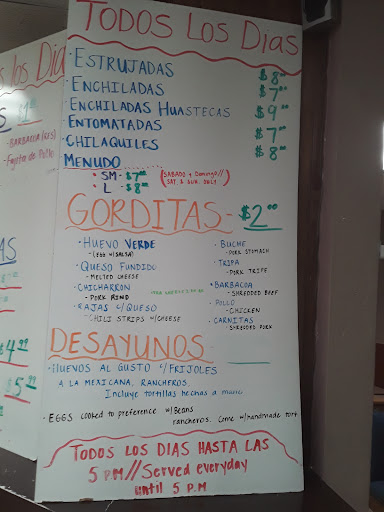 TODOS LOS DIAS
· ESTRUJADAS $8.00
· ENCHILADAS $7.00
· ENCHILADAS HUASTECAS $9.00
· ENTOMATADAS $7.00
· CHILAQUILES $8.00
MENUDO
· SM - $7.00
· L - $8.00
(SABADO y Domingo //
SAT & SUN. ONLY)
GORDITAS - $2.00
· HUEVO VERDE
- (EGG W/SALSA)
· QUESO FUNDIDO
- MELTED CHEESE
· CHICHARRON
- PORK RIND
· RAJAS C/QUESO
- CHILI STRIPS W/CHEESE
· BUCHE
- PORK STOMACH
· TRIPA
- PORK TRIPE
· BARBACOA
- SHREDDED BEEF
· POLLO
- CHICKEN
· CARNITAS
- SHREDDED PORK
DESAYUNOS -
· HUEVOS AL GUSTO C/FRIJOLES
A LA MEXICANA, RANCHEROS,
Incluye tortillas hechas a mano
· EGGS cooked to preference w/Beans
rancheros. Come w/handmade tort
TODOS LOS DIAS HASTA LAS
5 PM // Served everyday
until 5 P.M
os Dia
- BARBACOA (RES)
- Fajita de Pollo
AS
$4.99